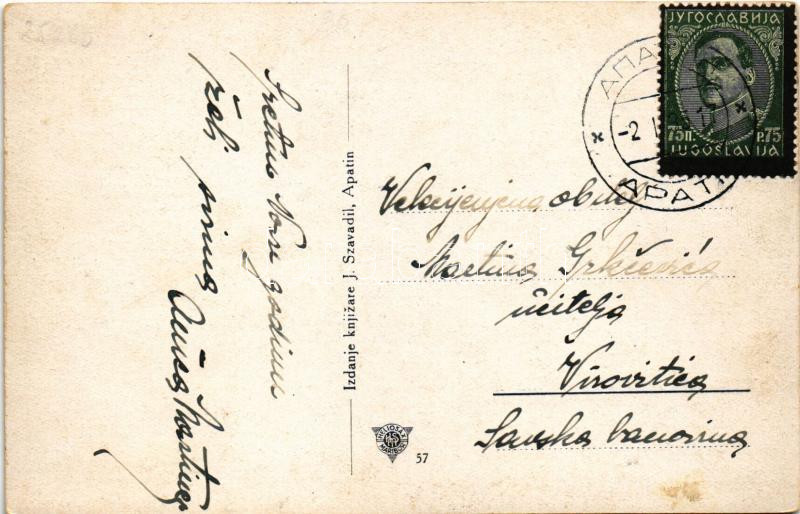 Sretnu Novu godinu
želi svima
Anica
Izdanje knjižare J. Szavadil, Apatin
HELIOS
MARIBOR
57
ЈУГОСЛАВИЈА
75П. P.75
JUGOSLAVIJA
АПАТ
-2 I
APATI
Velecijenjena obitelj
Martina Grkčevića
učitelja
Virovitica
Savska banovina